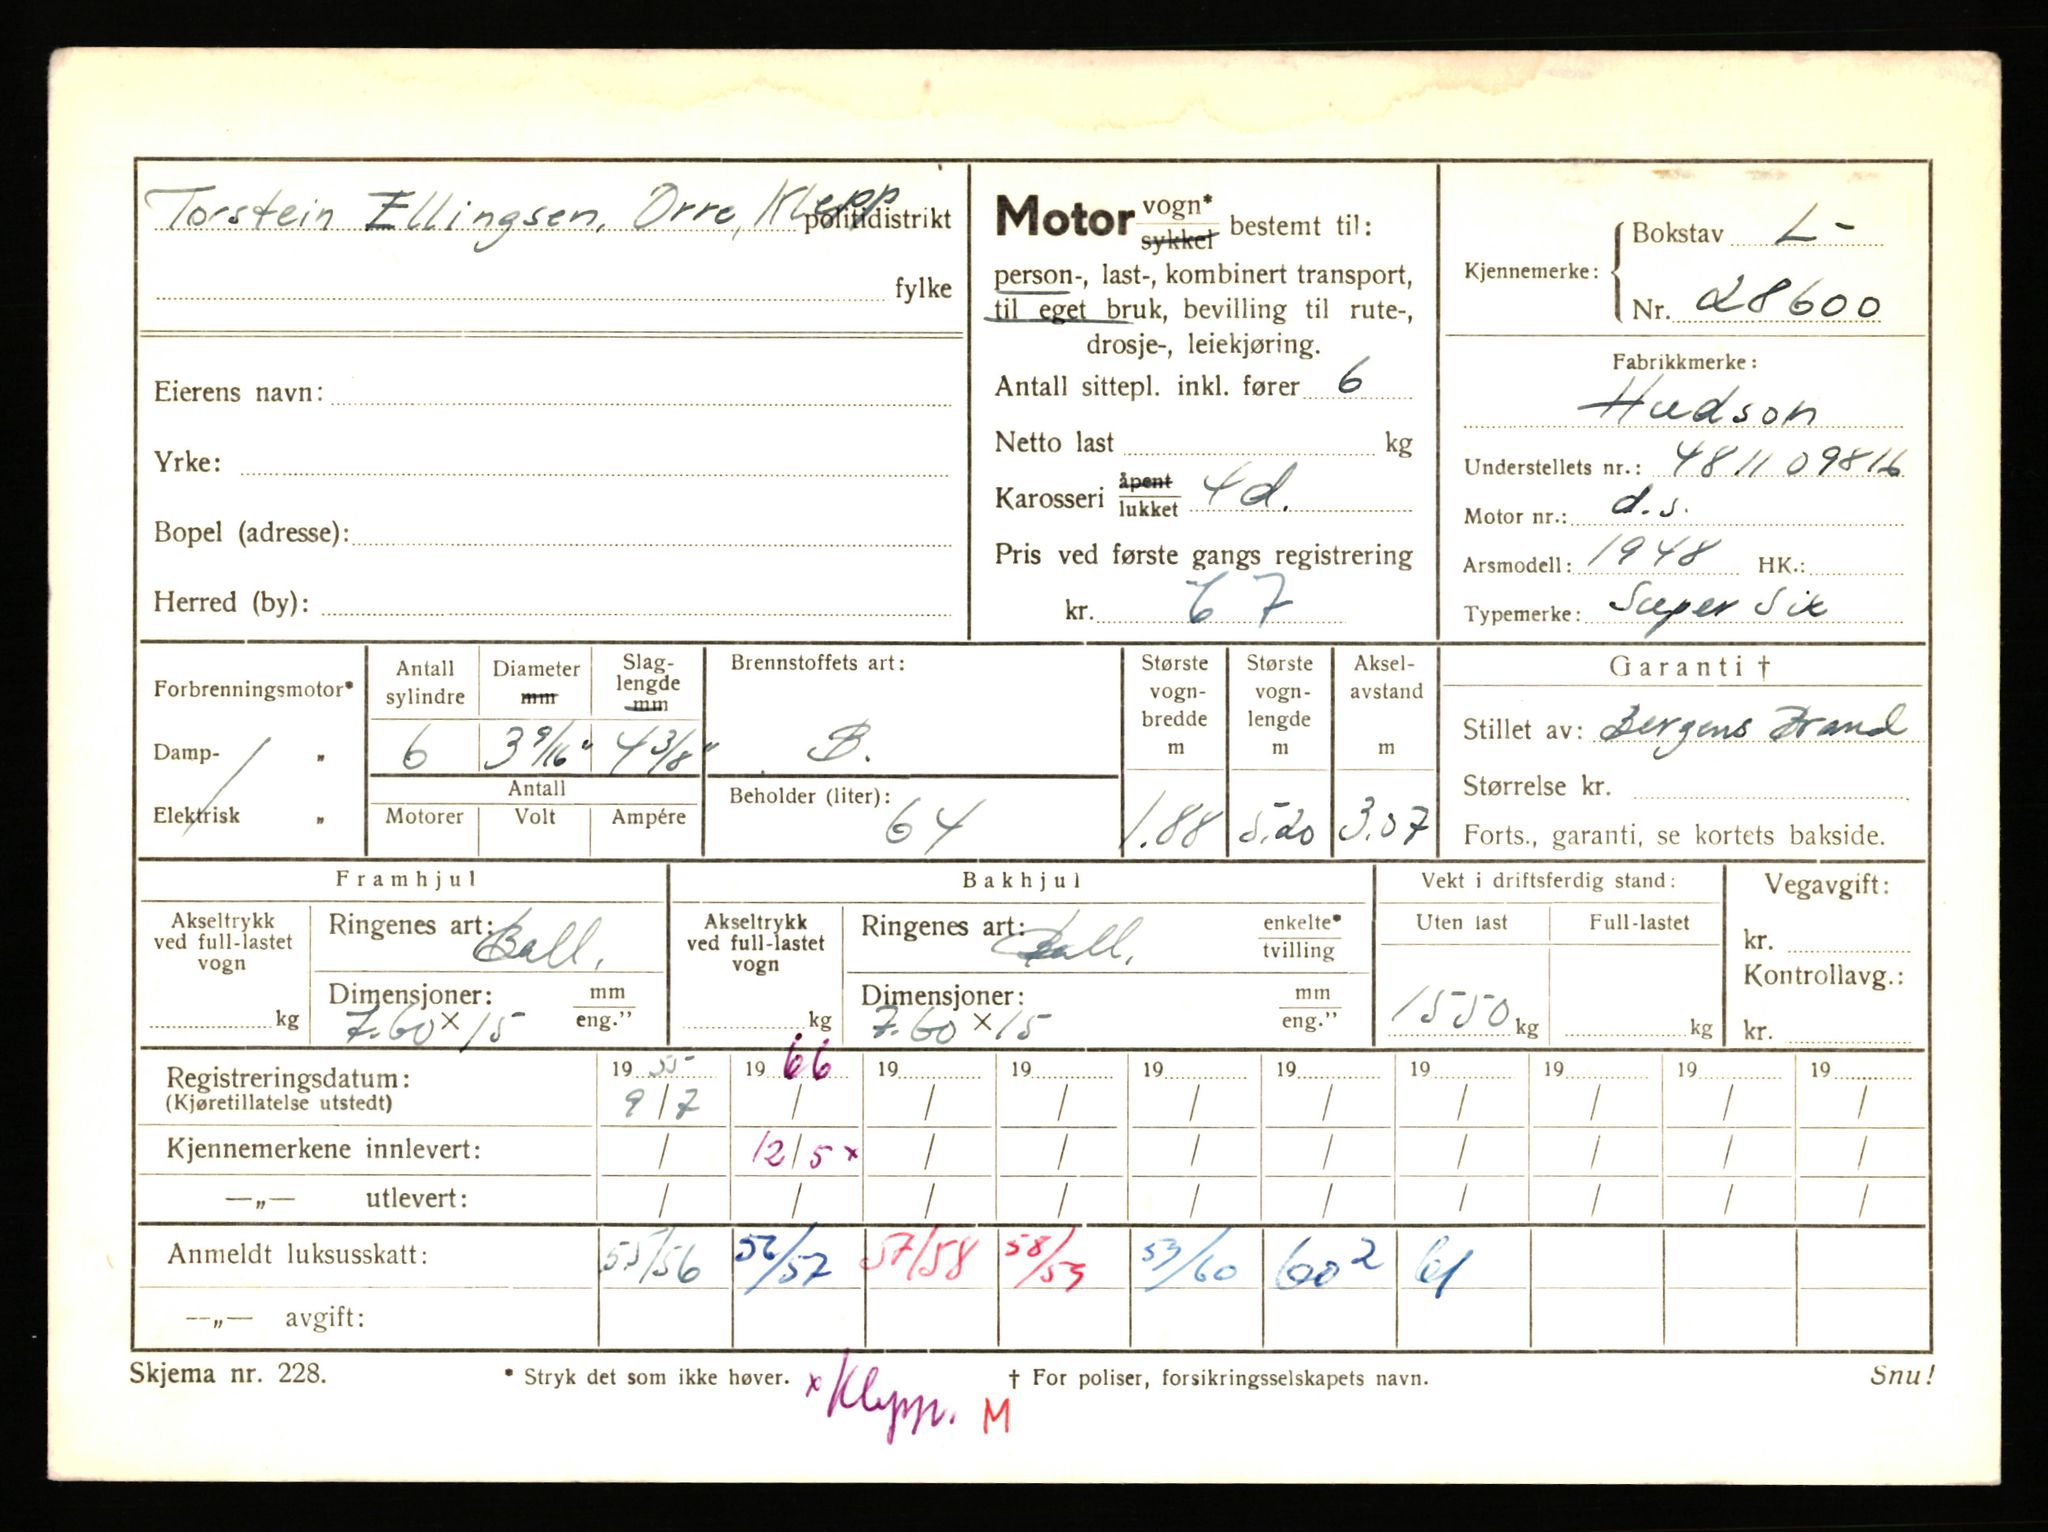 Torstein Ellingsen, Orre, Klepp politidistrikt
fylke
Eierens navn:
Yrke:
Bopel (adresse):
Herred (by):
Motor vogn* sykkel bestemt til:
person-, last-, kombinert transport,
til eget bruk, bevilling til rute-,
drosje-, leiekjøring.
Antall sittepl. inkl. fører 6
Netto last kg
Karosseri åpent lukket 4d.
Pris ved første gangs registrering
kr. 67
Kjennemerke: Bokstav L-
Nr. 28600
Fabrikkmerke:
Hudson
Understellets nr.: 481109816
Motor nr.: d.s.
Arsmodell: 1948 HK.:
Typemerke: Super Six
Forbrenningsmotor*
Damp- „
Elektrisk „
Antall sylindre
Diameter mm
Slag-
lengde
mm
6 3 9/16" 4 3/8"
Antall
Motorer Volt Ampére
Brennstoffets art:
B.
Beholder (liter):
64
Største
vogn-
bredde
m
1.88
Største
vogn-
lengde
m
5.20
Aksel-
avstand
m
3.07
Garanti †
Stillet av: Bergens Brand
Størrelse kr.
Forts., garanti, se kortets bakside.
Framhjul
Akseltrykk
ved full-lastet
vogn
kg
Ringenes art: Ball.
Dimensjoner: mm eng."
7.60 x 15
Bakhjul
Akseltrykk
ved full-lastet
vogn
kg
Ringenes art: Ball. enkelte* tvilling
Dimensjoner: mm eng."
7.60 x 15
Vekt i driftsferdig stand:
Uten last Full-lastet
1550 kg kg
Vegavgift:
kr.
Kontrollavg.:
kr.
Registreringsdatum: 19 55 19 66 19 19 19 19 19 19 19 19
(Kjøretillatelse utstedt) 9/7 / / / / / / / / /
Kjennemerkene innlevert: / 12/5 x / / / / / / / /
—„— utlevert: / / / / / / / / / /
Anmeldt luksusskatt: 55/56 56/57 57/58 58/59 59/60 60² 61
—„— avgift:
Skjema nr. 228. * Stryk det som ikke høver. † For poliser, forsikringsselskapets navn. Snu!
x Klepp. M